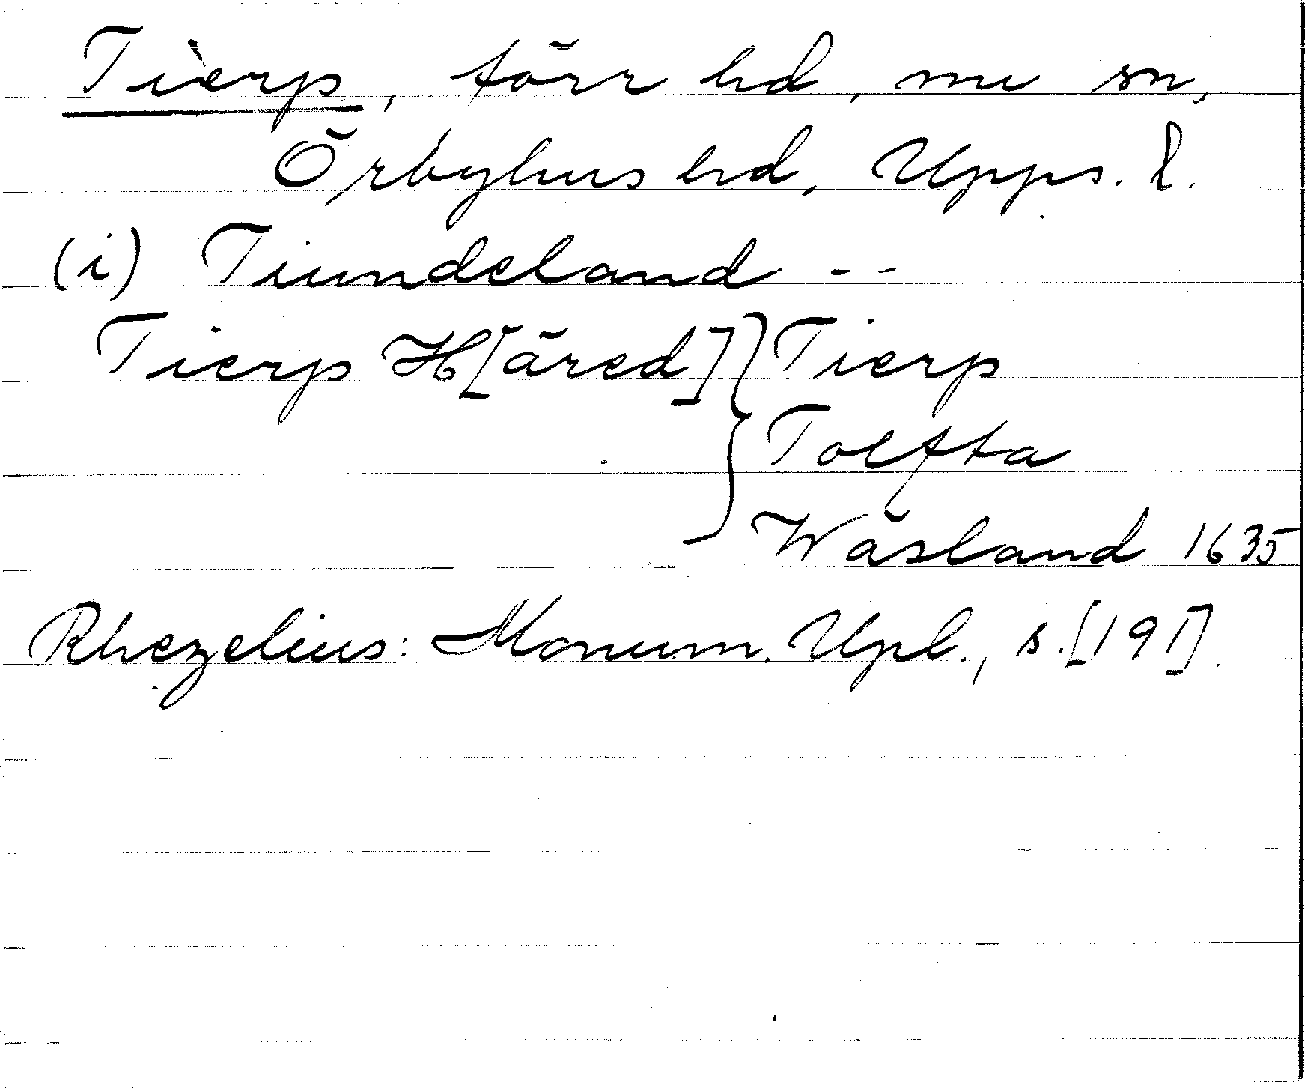 Tierp, förr hd, nu sn,
Örbyhus hd, Upps. l.
(i) Tiundeland --
Tierp H[äred] } Tierp
Tolfta
Wäsland 1635
Rhezelius: Monum. Upl., s. [191].